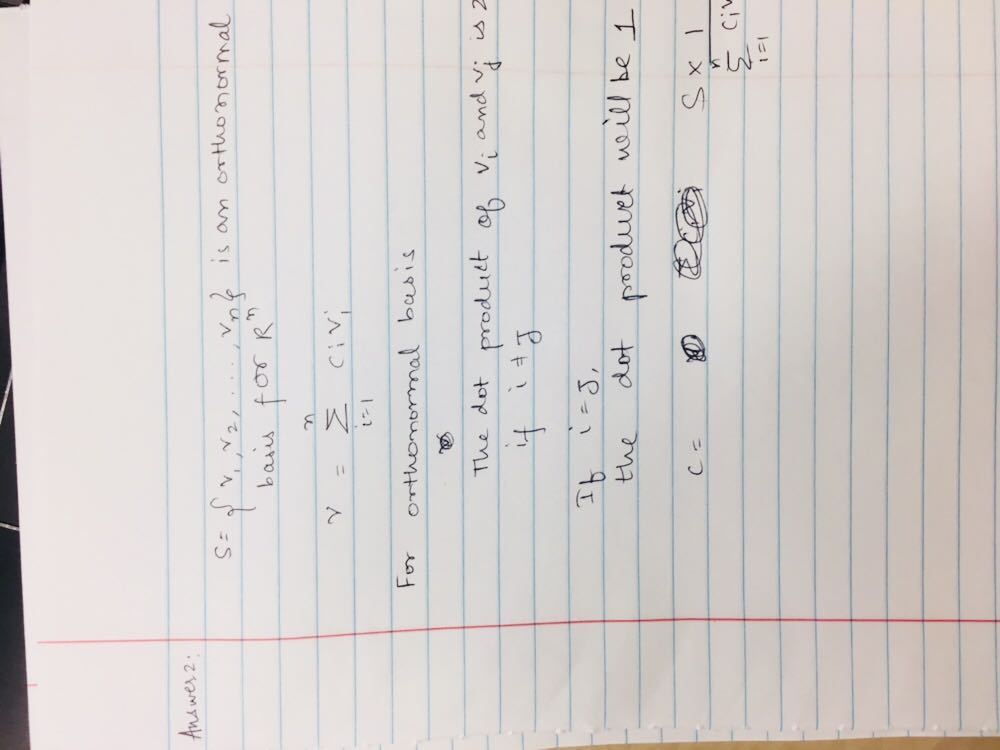 Answer 2:
S = { v₁, v₂, ...., vₙ } is an orthonormal
basis for Rⁿ
v = n∑i=1 civi
For orthonormal basis
The dot product of vi and vj is
if i ≠ J
If i = J,
the dot product will be 1
c = S × 1
n∑i=1 civ